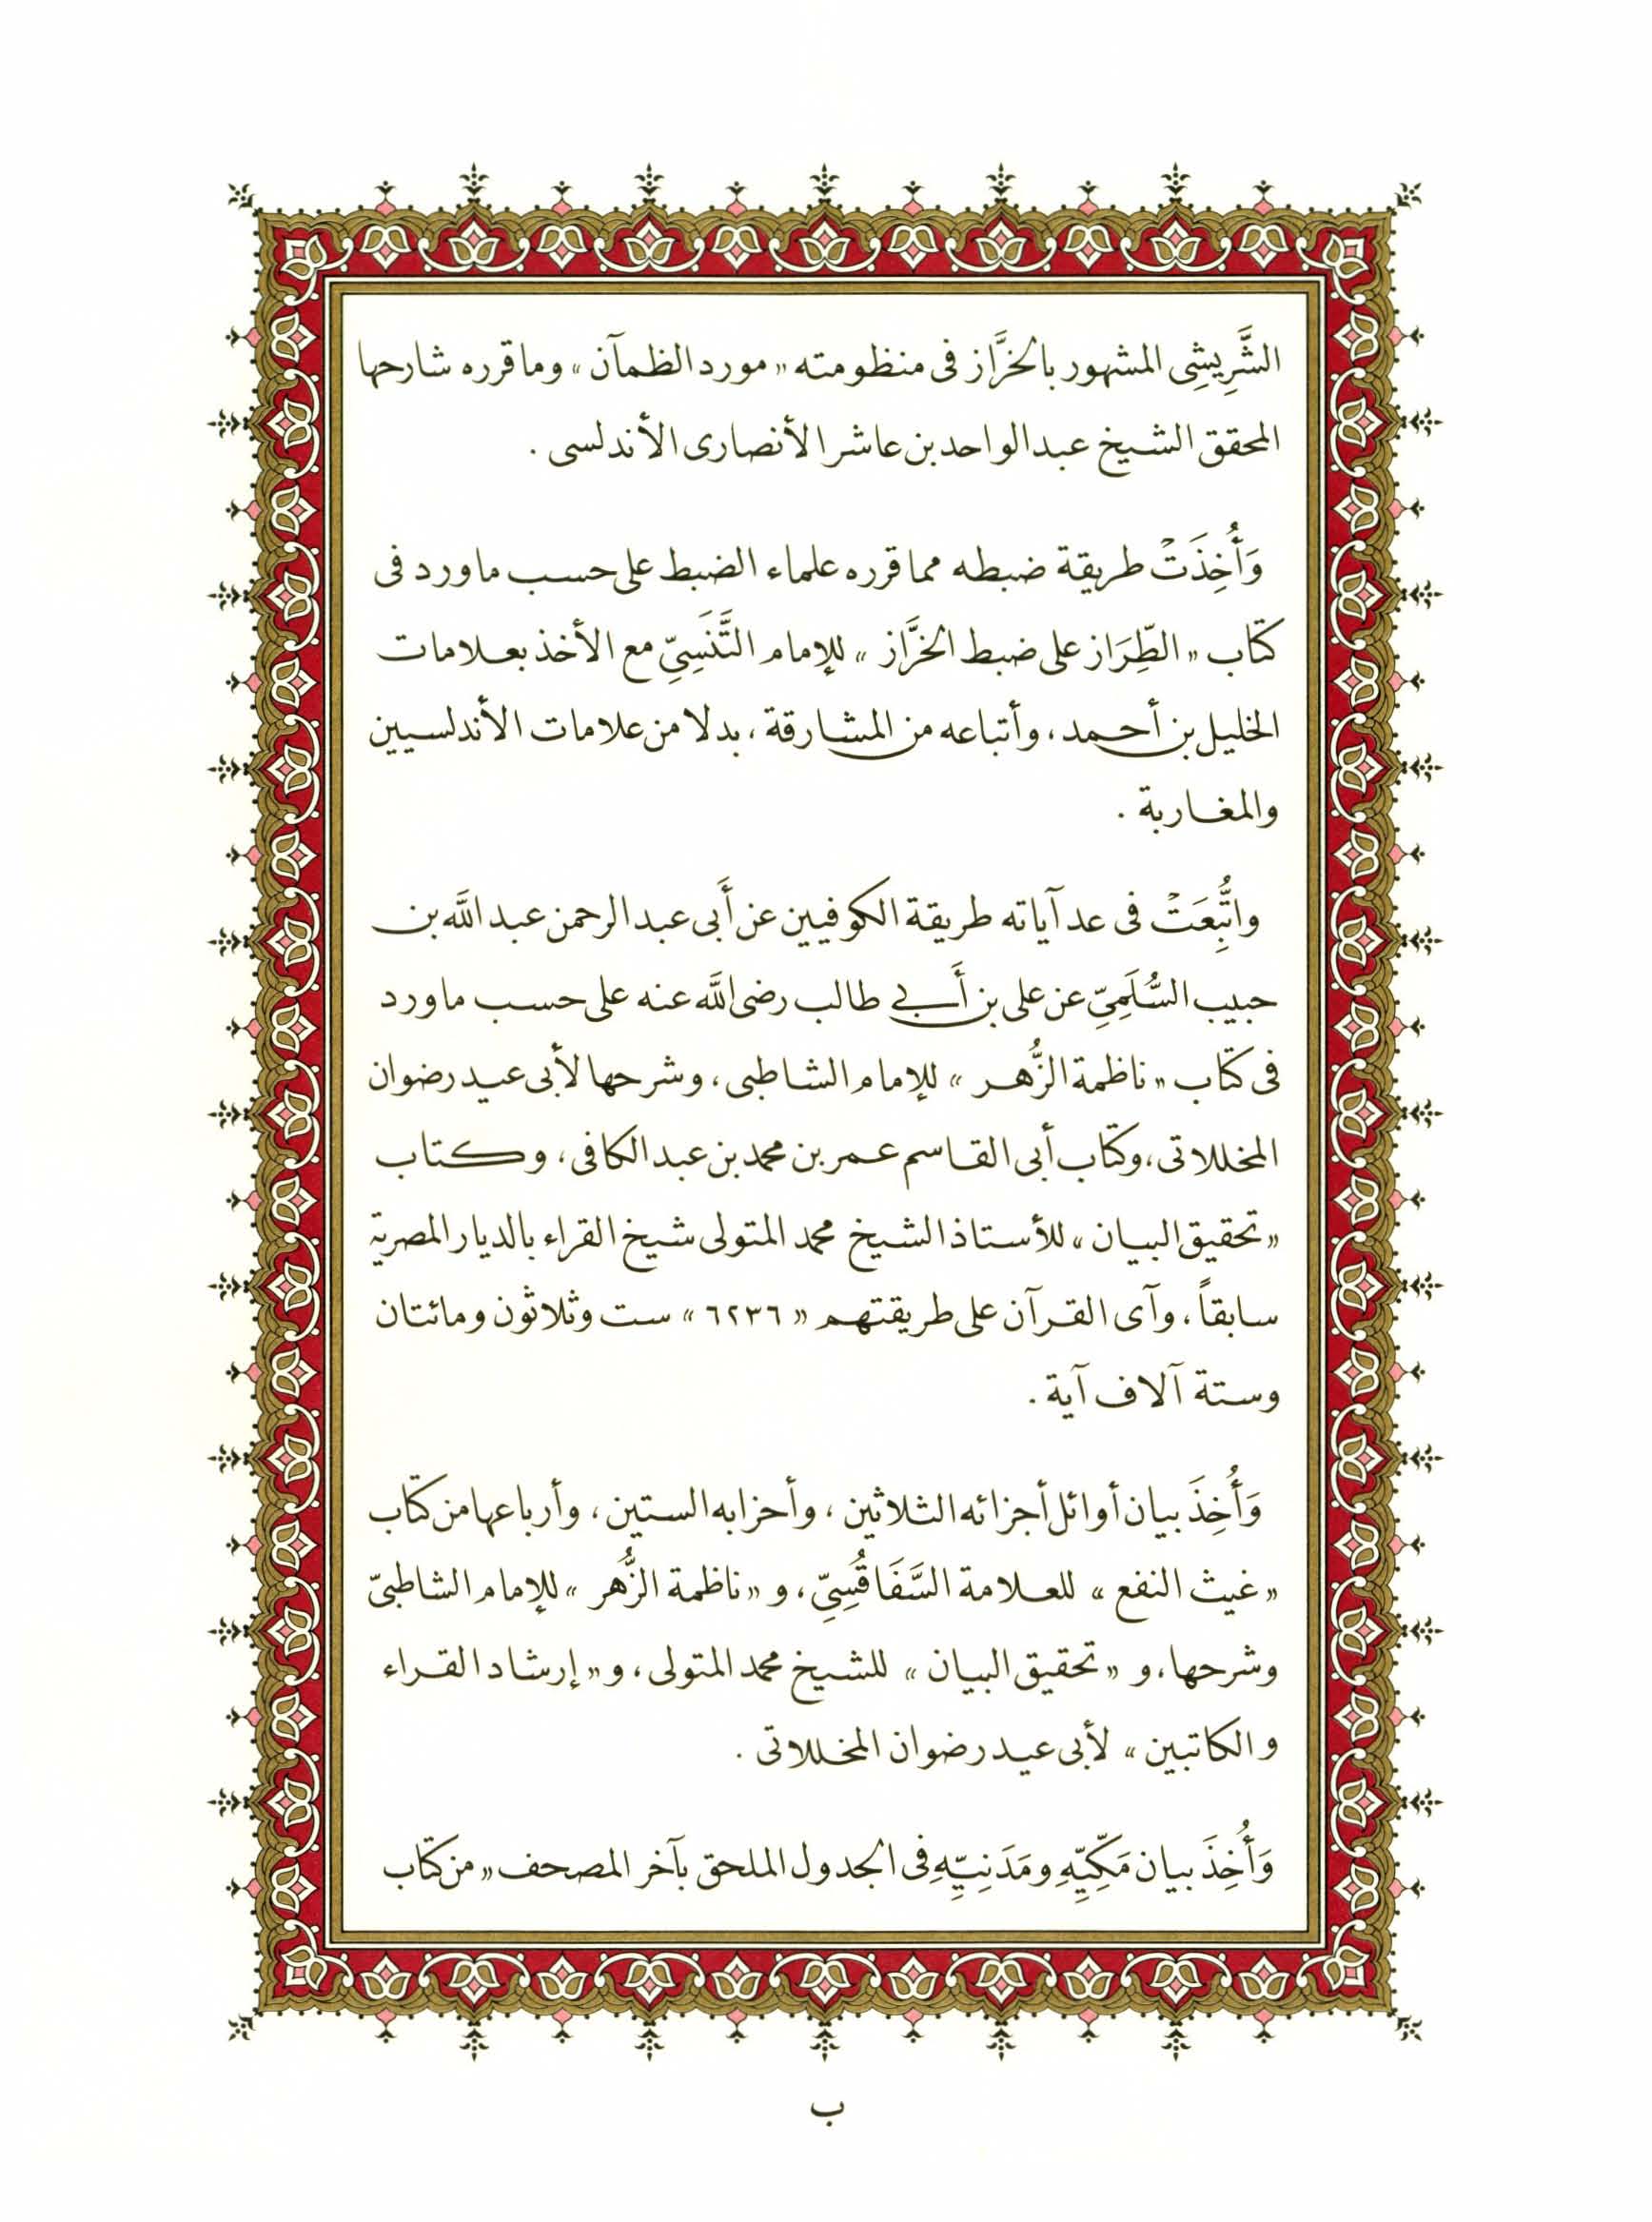 الشَّرِيشِى المشهور بالخرَّاز فى منظومته «مورد الظمآن» وما قرره شارحها
المحقق الشيخ عبد الواحد بن عاشر الأنصارى الأندلسى .
وَأُخِذَتْ طريقة ضبطه مما قرره علماء الضبط على حسب ما ورد فى
كتاب «الطِّرَاز على ضبط الخرَّاز» للإمام التَّنَسِىِّ مع الأخذ بعلامات
الخليل بن أحمد، وأتباعه من المشارقة، بدلا من علامات الأندلسيين
والمغاربة .
واتُّبِعَتْ فى عد آياته طريقة الكوفيين عن أَبى عبد الرحمن عبد اللَّه بن
حبيب السُّلَمِىِّ عن على بن أَبي طالب رضى اللَّه عنه على حسب ما ورد
فى كتاب «ناظمة الزُّهر» للإمام الشاطبى، وشرحها لأبى عيد رضوان
المخللاتى، وكتاب أبى القاسم عمر بن محمد بن عبد الكافى، وكتاب
«تحقيق البيان» للأستاذ الشيخ محمد المتولى شيخ القراء بالديار المصرية
سابقاً، وآى القرآن على طريقتهم «٦٢٣٦» ست وثلاثون ومائتان
وستة آلاف آية .
وَأُخِذَ بيان أوائل أجزائه الثلاثين، وأحزابه الستين، وأرباعها من كتاب
«غيث النفع» للعلامة السَّفَاقُسِىِّ، و«ناظمة الزُّهر» للإمام الشاطبىّ
وشرحها، و«تحقيق البيان» للشيخ محمد المتولى، و«إرشاد القراء
والكاتبين» لأبى عيد رضوان المخللاتى .
وَأُخِذَ بيان مَكِّيِّهِ ومَدَنِيِّهِ فى الجدول الملحق بآخر المصحف «من كتاب
ب